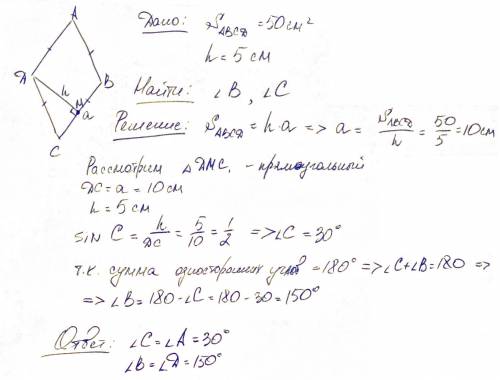 A
D
h
M
B
a
C
Дано: S ABCD = 50 см²
h = 5 см
Найти: ∠B, ∠C
Решение: S ABCD = h·a => a = S ABCD / h = 50/5 = 10 см
Рассмотрим △DMC, - прямоугольный
DC = a = 10 см
h = 5 см
sin C = h/DC = 5/10 = 1/2 => ∠C = 30°
т.к. сумма односторонних углов = 180° => ∠C+∠B=180 =>
=> ∠B = 180 - ∠C = 180 - 30 = 150°
Ответ: ∠C = ∠A = 30°
∠B = ∠D = 150°